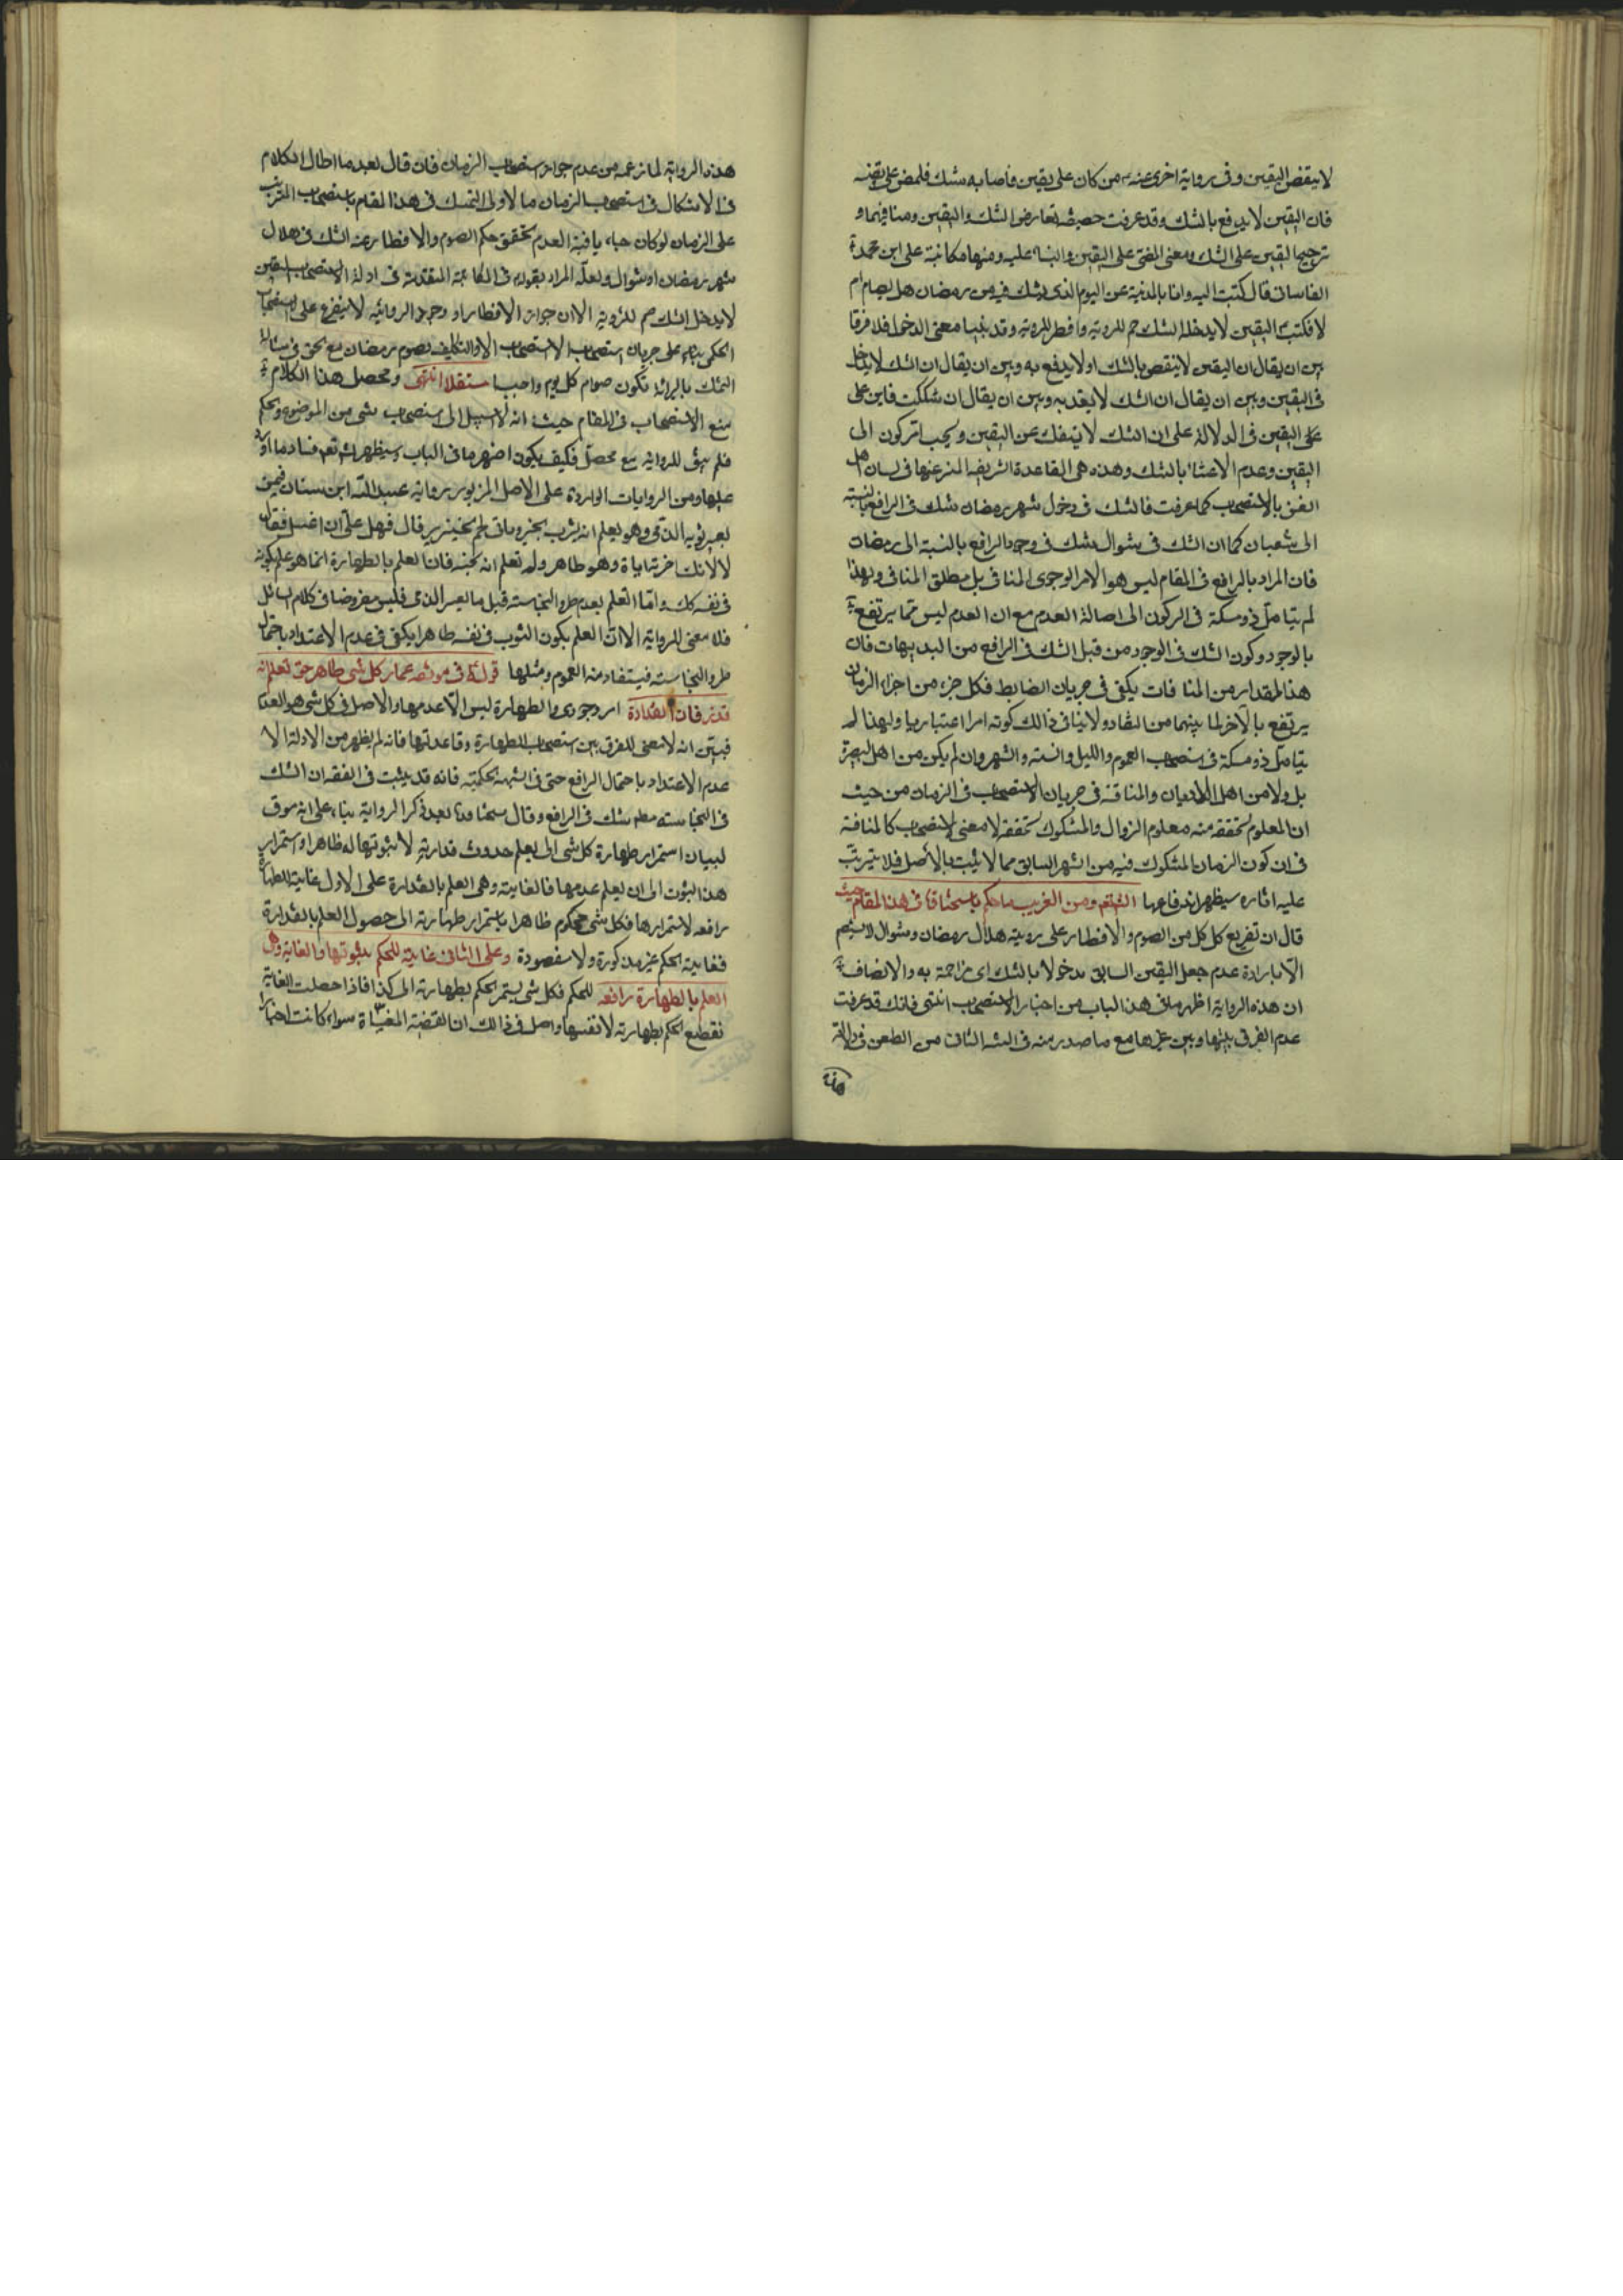 لا ينقض اليقين وفى رواية اخرى عنه من كان على يقين فاصابه شك فليمض على يقينه
فان اليقين لا يدفع بالشك وقد عرفت تعارض الشك واليقين ومنافيهما و
ترجيح اليقين على الشك ومعنى المضى على اليقين والبناء عليه ومنها مكاتبة على ابن محمد
القاسانى قال كتبت اليه وانا بالمدينة عن اليوم الذى يشك فيه من رمضان هل يصام ام
لا فكتب اليقين لا يدخله الشك صم للروية وافطر للروية وقد بينا معنى الدخول فلا فرق
بين ان يقال ان اليقين لا ينقض بالشك او لا يدفع به وبين ان يقال ان الشك لا يدخل
فى اليقين وبين ان يقال ان الشك لا يعتد به وبين ان يقال ان شككت فابن على
على اليقين فى الدلالة على ان الشك لا ينفك عن اليقين ويجب الركون الى
اليقين وعدم الاعتناء بالشك وهذه هى القاعدة الشريفة المعبر عنها فى لسان اهل
الفن بالاستصحاب كما عرفت فالشك فى دخول شهر رمضان شك فى الرافع بالنسبة
الى شعبان كما ان الشك فى شوال شك فى وجود الرافع بالنسبة الى رمضان
فان المراد بالرافع فى المقام ليس هو الامر الوجودى المنافى بل مطلق المنافى ولهذا
لم يتامل ذو مسكة فى الركون الى اصالة العدم مع ان العدم ليس مما يرتفع
بالوجود وكون الشك فى الوجود من قبل الشك فى الرافع من البديهات فان
هذا المقدار من المنافات يكفى فى جريان الضابط فكل جزء من اجزاء الزمان
يرتفع بالآخر لما بينهما من التضاد ولا ينافى ذالك كونه امرا اعتباريا ولهذا لم
يتامل ذو مسكة فى استصحاب اليوم والليل والسنة والشهر وان لم يكن من اهل البصيرة
بل ولا من اهل الاذعان والمناقشة فى جريان الاستصحاب فى الزمان من حيث
ان المعلوم تحققه منه معلوم الزوال والمشكوك تحققه لا معنى لاستصحابه كالمناقشة
فى ان كون الزمان المشكوك فيه من الشهر السابق مما لا يثبت بالاصل فلا يترتب
عليه اثاره سيظهر اندفاعها انشاء الله تعالى ومن الغريب ما حكم باستحقاقه فى هذا المقام حيث
قال ان تفريع كل من الصوم والافطار على روية هلال رمضان وشوال لا يستقيم
الا بارادة عدم جعل اليقين السابق مدخولا بالشك اى مزاحمة به والانصاف
ان هذه الرواية اظهر ما فى هذا الباب من اخبار الاستصحاب انتهى فانك قد عرفت
عدم الفرق بينها وبين غيرها مع ما صدر منه فى الشك الثانى من الطعن فى دلالة
هذه
هذه الرواية لما زعمه من عدم جواز استصحاب الزمان فان قال بعد ما اطال الكلام
فى الاشكال فى استصحاب الزمان ما لاولى التمسك فى هذا المقام باستصحاب المترتب
على الزمان لو كان جاريا فيه العدم بتحقق حكم الصوم والافطار عند الشك فى هلال
شهر رمضان او شوال ولعله المراد بقوله فى المكاتبة المتقدمة فى ادلة الاستصحاب اليقين
لا يدخل الشك صم للروية الا ان جواز الافطار او وجوبه للروية لا يتفرع على استصحاب
الحكمى بناء على جريان استصحاب الاشتغال والتكليف بصوم رمضان مع الحق فى مثله
التمسك بالبرائة لكون صوام كل يوم واجبا مستقلا انتهى ومحصل هذا الكلام
منع الاستصحاب فى المقام حيث انه لا سبيل الى استصحاب شى من الموضوع والحكم
فلم يبق للرواية مع محصل فكيف يكون اظهر ما فى الباب وسيظهر لك انشاء الله تعالى فساد ما اورد
عليها ومن الروايات الواردة على الاصل المزبور رواية عبد الله ابن سنان فيمن
يعير ثوبه الذمى وهو يعلم انه يشرب الخمر وياكل لحم الخنزير قال فهل على ان اغسله فقال
لا لانك اعرته اياه وهو طاهر ولم تعلم انه نجسه فان العلم بالطهارة انما هو علم بكونه
فى نفسه كك واما العلم بعدم طرو النجاسة قبل ما يعيره الذمى فليس مفروضا فى كلام السائل
فلا معنى للرواية الا ان العلم بكون الثوب فى نفسه طاهرا يكفى فى عدم الاعتداد باحتمال
طرو النجاسة فيستفاد منه العموم ومثلها قوله فى موثقة عمار كل شى طاهر حتى تعلم انه
قذر فان القذارة امر وجودى والطهارة ليس الا عدمها والاصل فى كل شى هو العدم
فتبين انه لا معنى للفرق بين استصحاب الطهارة وقاعدتها فانه لم يظهر من الادلة الا
عدم الاعتداد باحتمال الرافع حتى فى الشبهة الحكمية فانه قد يثبت فى الفقه ان الشك
فى النجاسة مطلقا شك فى الرافع وقال بعد ذكر الرواية بناء على انه مسوق
لبيان استمرار طهارة كل شى الى ان يعلم حدوث قذارته لا ثبوتها له ظاهرا واستمرار
هذا الثبوت الى ان يعلم عدمها فالغاية وهى العلم بالقذارة على الاول غاية للطهارة
رافعه لاستمرارها فكل شى محكوم ظاهرا باستمرار طهارته الى حصول العلم بالقذارة
فغاية الحكم غير مذكورة ولا مقصودة وعلى الثانى غاية للحكم بثبوتها والغاية وهى
العلم بالطهارة رافعة للحكم فكل شى يستمر الحكم بطهارته الى كذا فاذا حصلت الغاية
تقطع الحكم بطهارته لا نفسها واصل فى ذالك ان القضية المغياة سواء كانت اخبارا